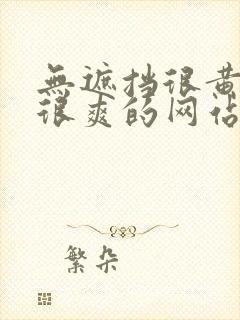 無遮挡很黄
很爽的网站
繁朵